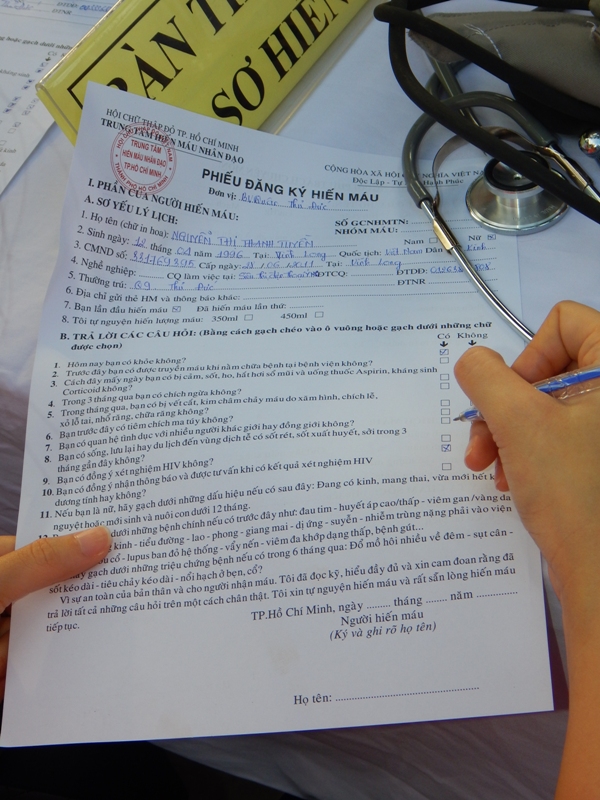 BÀN TI
SƠ HIẾN
HỘI CHỮ THẬP ĐỎ TP. HỒ CHÍ MINH
TRUNG TÂM HIẾN MÁU NHÂN ĐẠO
TRUNG TÂM
HIẾN MÁU NHÂN ĐẠO
TP.HỒ CHÍ MINH
CỘNG HÒA XÃ HỘI NGHĨA VIỆT
Độc Lập - Tự Hạnh Phúc
PHIẾU ĐĂNG KÝ HIẾN MÁU
Đơn vị: Thủ Đức
I. PHẦN CỦA NGƯỜI HIẾN MÁU:
SỐ GCNHMTN:
A. SƠ YẾU LÝ LỊCH:
NHÓM MÁU:
1. Họ tên (chữ in hoa): NGUYỄN THỊ THANH TUYỀN
Nam Nữ
2. Sinh ngày: 12 tháng 01 năm 1996 Tại: Vĩnh Long Quốc tịch: Việt Nam Dân Kinh
3. CMND số: Cấp ngày: Tại: Vĩnh Long
4. Nghề nghiệp: CQ làm việc tại: ĐTCQ: ĐTDĐ:
5. Thường trú: Q9 Thủ Đức ĐTNR
6. Địa chỉ gửi thẻ HM và thông báo khác:
7. Bạn lần đầu hiến máu Đã hiến máu lần thứ:
8. Tôi tự nguyện hiến lượng máu: 350ml 450ml
B. TRẢ LỜI CÁC CÂU HỎI: (Bằng cách gạch chéo vào ô vuông hoặc gạch dưới những chữ được chọn)
Có Không
1. Hôm nay bạn có khỏe không?
2. Trước đây bạn có được truyền máu khi nằm chữa bệnh tại bệnh viện không?
3. Cách đây mấy ngày bạn có bị cảm, sốt, ho, hắt hơi sổ mũi và uống thuốc Aspirin, kháng sinh
Corticoid không?
4. Trong 3 tháng qua bạn có chích ngừa không?
5. Trong tháng qua, bạn có bị vết cắt, kim châm chảy máu do xăm hình, chích lễ,
xỏ lỗ tai, nhổ răng, chữa răng không?
6. Bạn trước đây có tiêm chích ma túy không?
7. Bạn có quan hệ tình dục với nhiều người khác giới hay đồng giới không?
8. Bạn có sống, lưu lại hay du lịch đến vùng dịch tễ có sốt rét, sốt xuất huyết, sởi trong 3
tháng gần đây không?
9. Bạn có đồng ý xét nghiệm HIV không?
10. Bạn có đồng ý nhận thông báo và được tư vấn khi có kết quả xét nghiệm HIV
dương tính hay không?
11. Nếu bạn là nữ, hãy gạch dưới những dấu hiệu nếu có sau đây: Đang có kinh, mang thai, vừa mới hết
nguyệt hoặc mới sinh và nuôi con dưới 12 tháng.
dưới những bệnh chính nếu có trước đây như: đau tim - huyết áp cao/thấp - viêm gan /vàng da
kinh - tiểu đường - lao - phong - giang mai - dị ứng - suyễn - nhiễm trùng nặng phải vào viện
cổ - lupus ban đỏ hệ thống - vẩy nến - viêm đa khớp dạng thấp, bệnh gút...
gạch dưới những triệu chứng bệnh nếu có trong 6 tháng qua: Đổ mồ hôi nhiều về đêm - sụt cân -
sốt kéo dài - tiêu chảy kéo dài - nổi hạch ở bẹn, cổ?
Vì sự an toàn của bản thân và cho người nhận máu. Tôi đã đọc kỹ, hiểu đầy đủ và xin cam đoan rằng đã
trả lời tất cả những câu hỏi trên một cách chân thật. Tôi xin tự nguyện hiến máu và rất sẵn lòng hiến máu
tiếp tục.
TP.Hồ Chí Minh, ngày ........ tháng ....... năm ..............
Người hiến máu
(Ký và ghi rõ họ tên)
Họ tên: